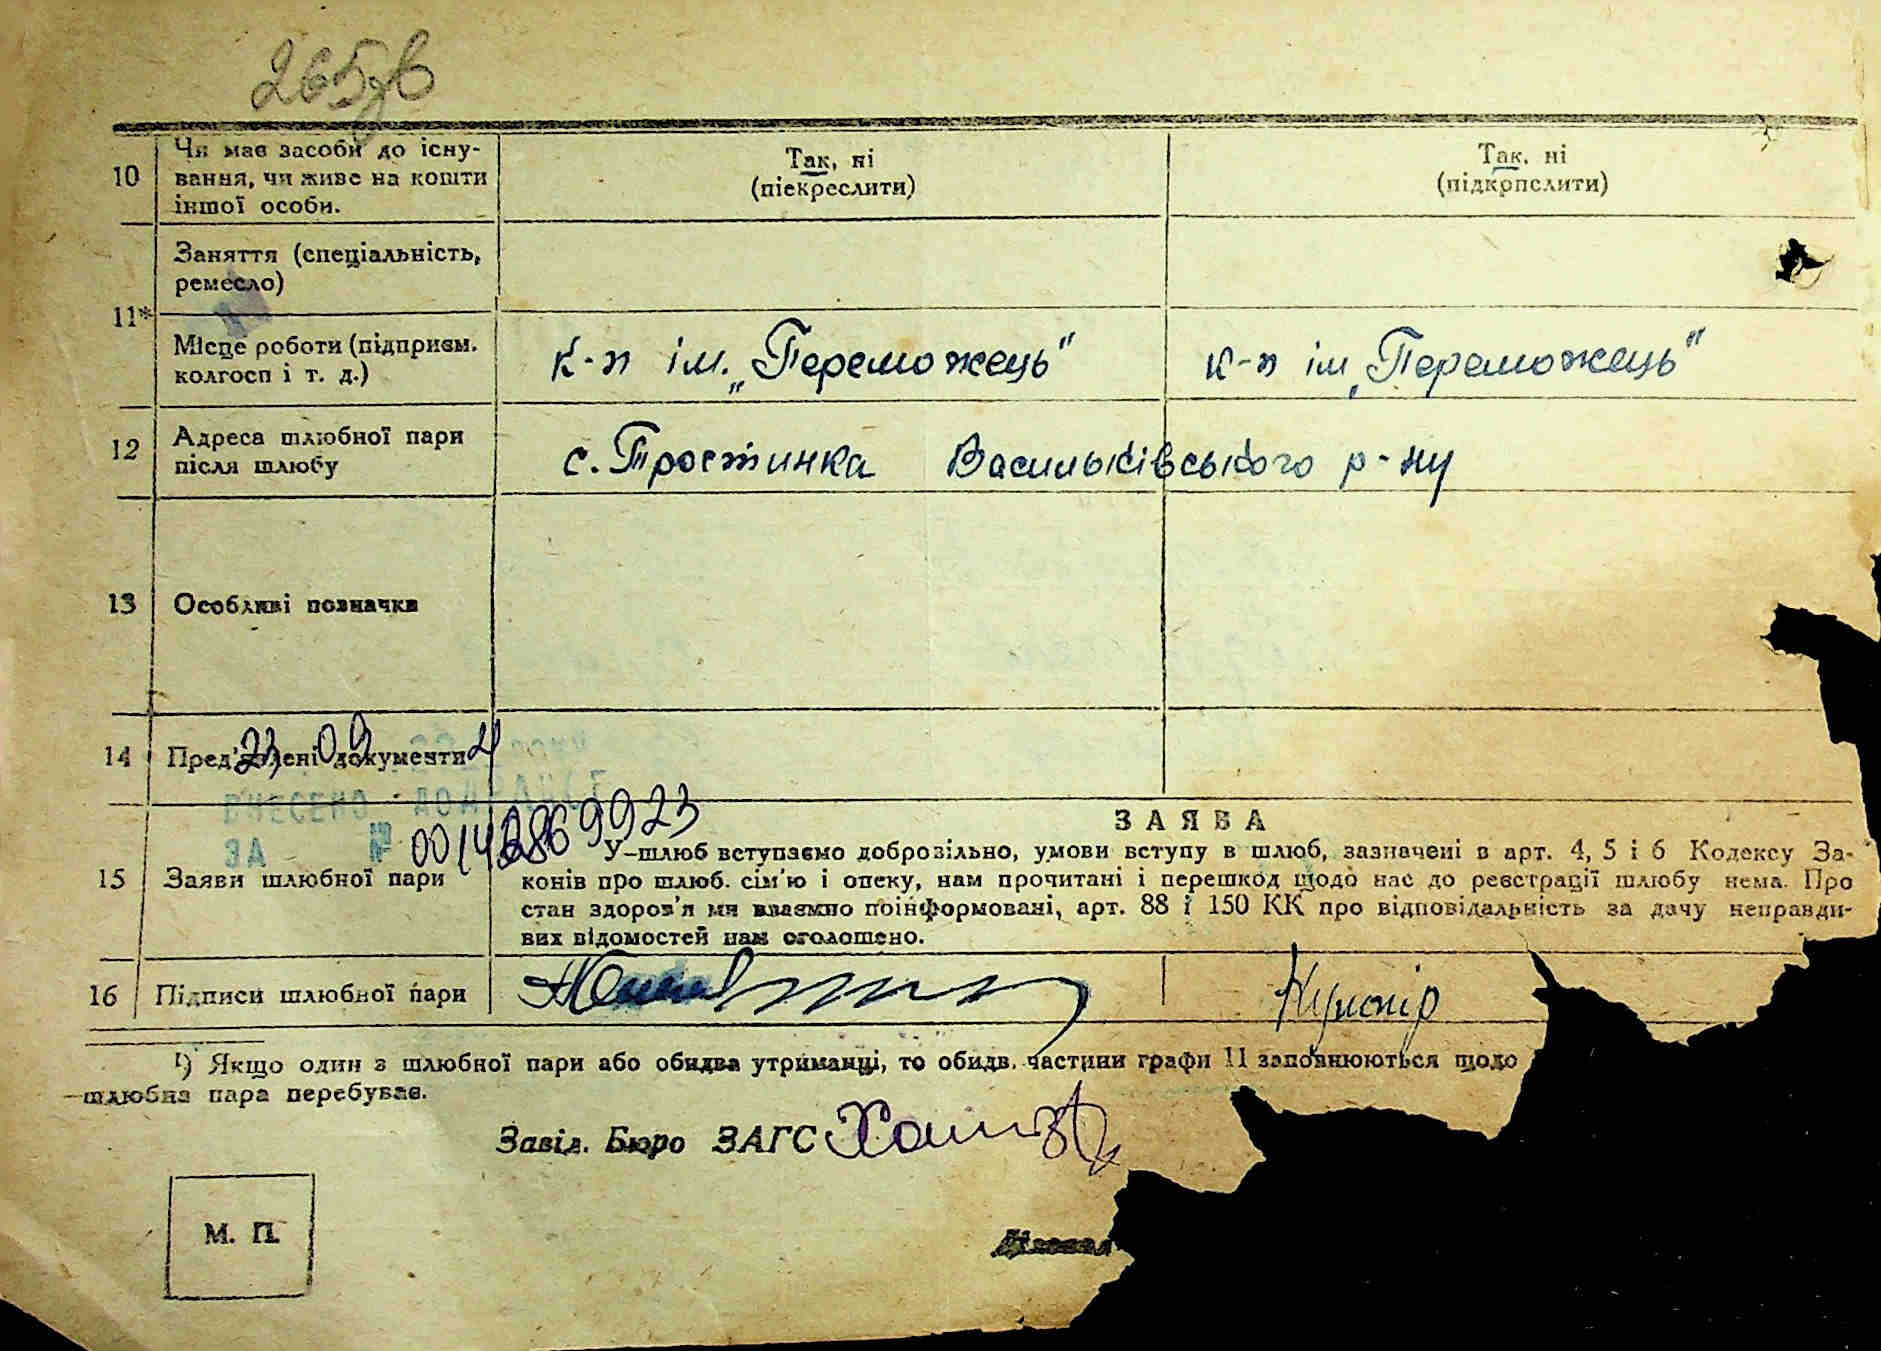 265зв
10 Чи має засоби до існу-
вання, чи живе на кошти
іншої особи.
Так, ні
(піекреслити)
Так, ні
(підкрпслити)
11*
Заняття (спеціальність,
ремесло)
Місце роботи (підприєм.
колгосп і т. д.)
к-п ім. „Переможець"
к-п ім „Переможець"
12 Адреса шлюбної пари
після шлюбу
с. Тростинка Васильківського р-ну
13 Особливі позначки
14 Пред'явлені документи
23 09
ВНЕСЕНО ДО
ЗА №
15 Заяви шлюбної пари
ЗАЯВА
У-шлюб вступаємо добровільно, умови вступу в шлюб, зазначені в арт. 4, 5 і 6 Кодексу За-
конів про шлюб. сім'ю і опеку, нам прочитані і перешкод щодо нас до реєстрації шлюбу нема. Про
стан здоров'я ми взаємно поінформовані, арт. 88 і 150 КК про відповідальність за дачу неправди-
вих відомостей нам оголошено.
16 Підписи шлюбної пари
Кушнір
¹) Якщо один з шлюбної пари або обидва утриманці, то обидв. частини графи 11 заповнюються щодо
шлюбна пара перебуває.
Завід. Бюро ЗАГС
М. П.